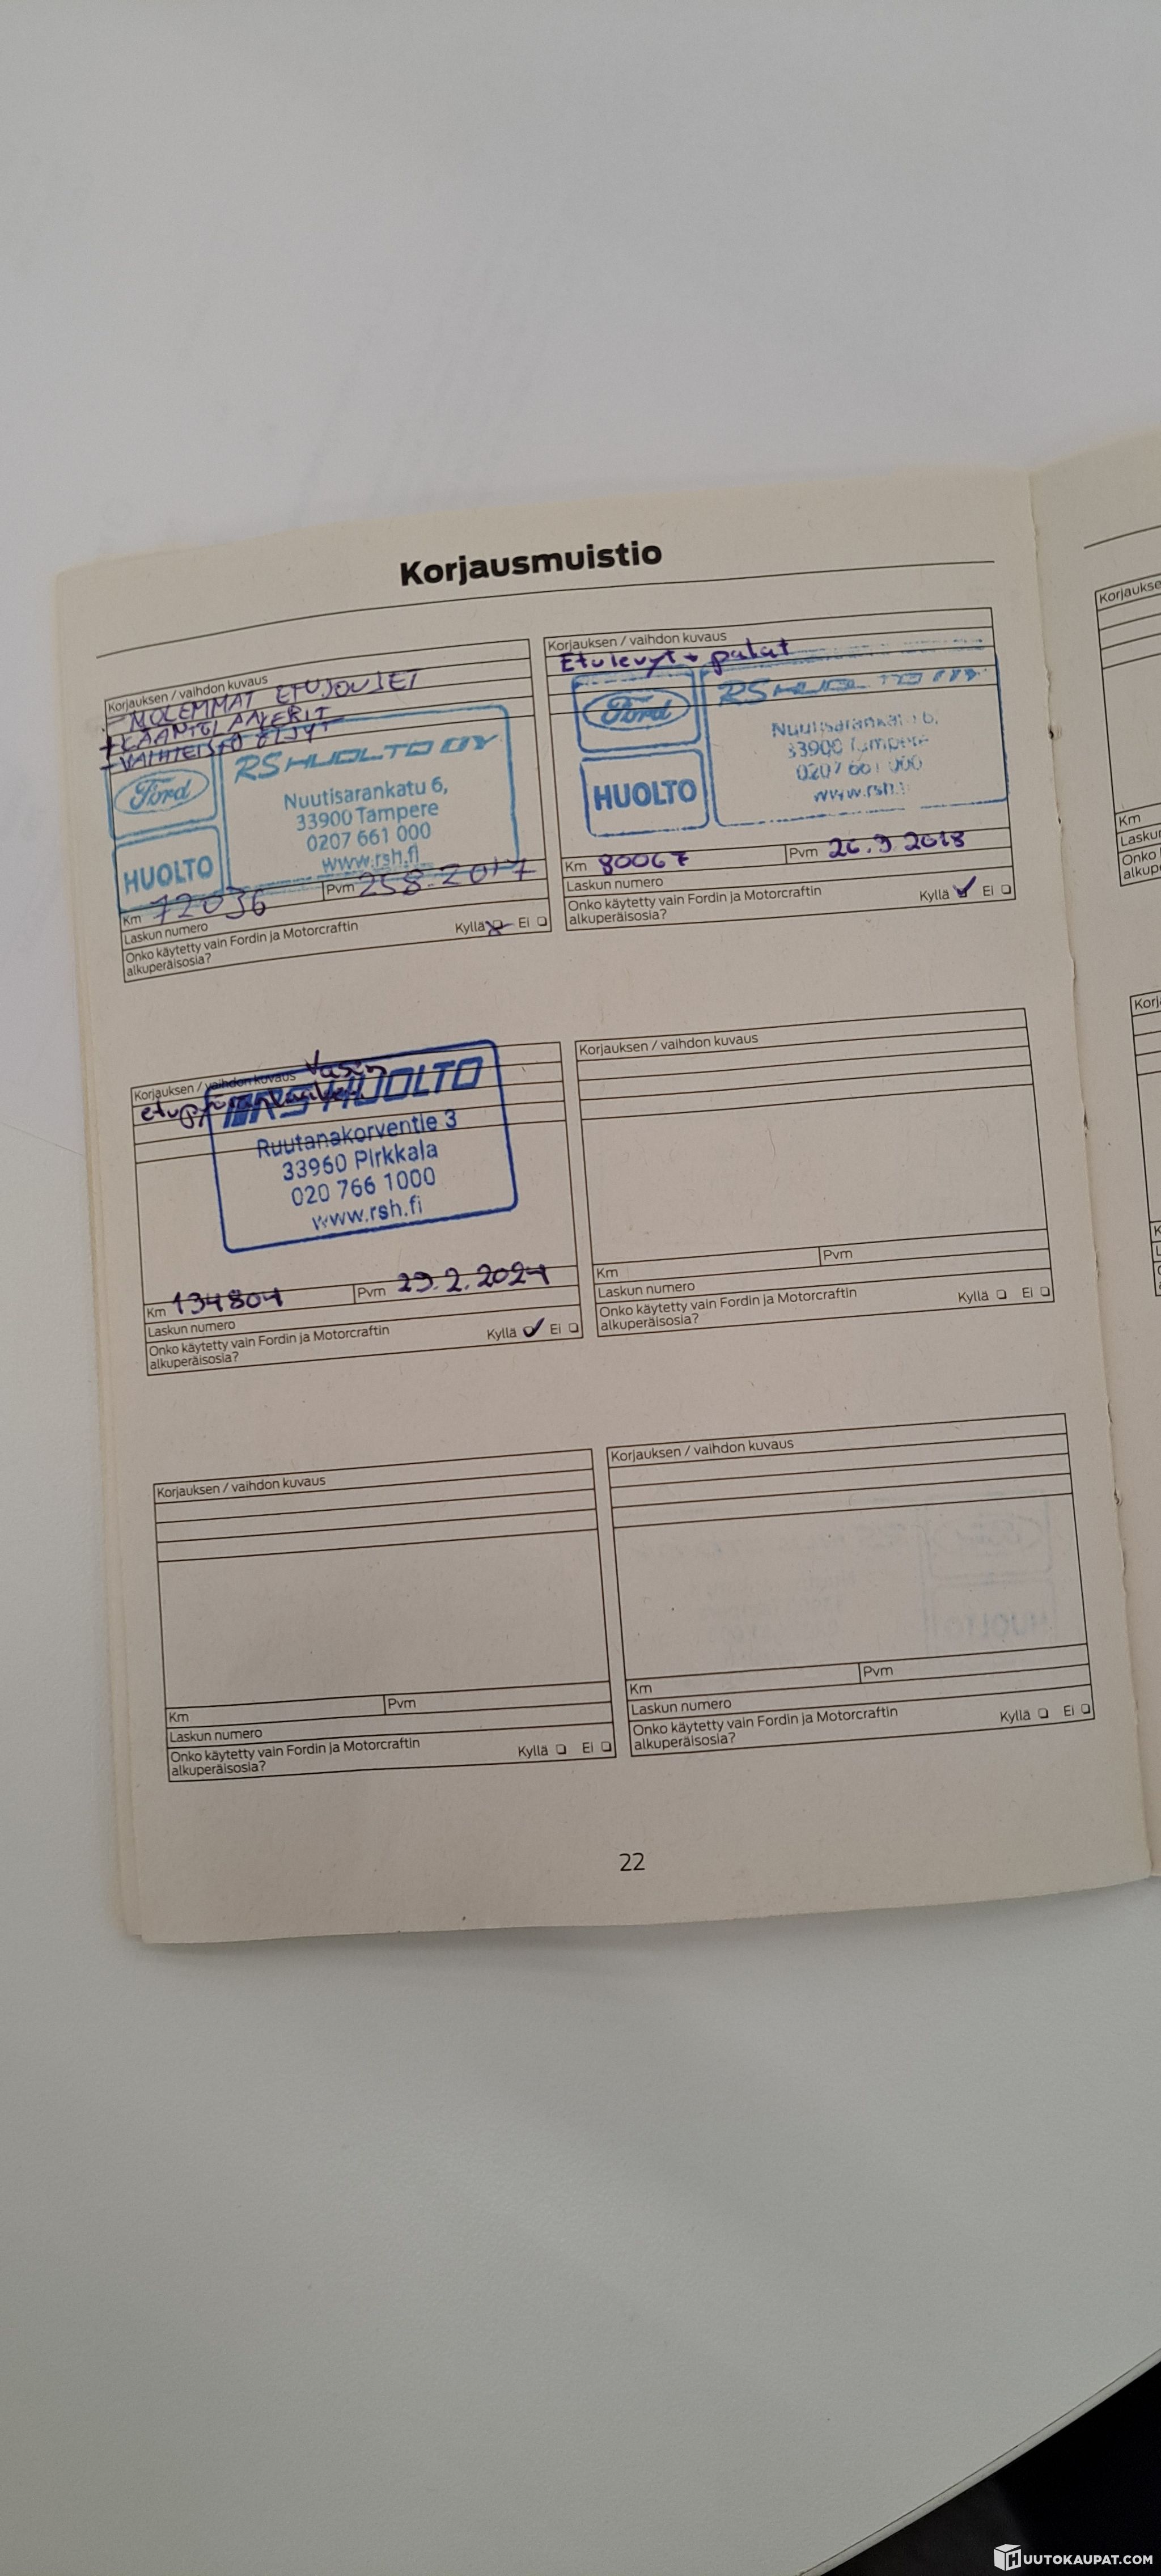 Korjausmuistio
Korjauksen / vaihdon kuvaus
- MOLEMMAT ETUJOUSET
+ KÄÄNTÖLAAKERIT
- VAIHTEISTO ÖLJYT
Ford
HUOLTO
RS HUOLTO OY
Nuutisarankatu 6,
33900 Tampere
0207 661 000
www.rsh.fi
Km 72036 Pvm 25.8.2017
Laskun numero
Onko käytetty vain Fordin ja Motorcraftin
alkuperäisosia?
Kyllä Ei
Korjauksen / vaihdon kuvaus
Etulevyt + palat
Ford
HUOLTO
RS HUOLTO OY
Nuutisarankatu 6,
33900 Tampere
0207 661 000
www.rsh.fi
Km 80067 Pvm 26.9.2018
Laskun numero
Onko käytetty vain Fordin ja Motorcraftin
alkuperäisosia?
Kyllä Ei
Korjauksen / vaihdon kuvaus Vasen
RS HUOLTO
Ruutanakorventie 3
33960 Pirkkala
020 766 1000
www.rsh.fi
Km 134804 Pvm 29.2.2024
Laskun numero
Onko käytetty vain Fordin ja Motorcraftin
alkuperäisosia?
Kyllä Ei
Korjauksen / vaihdon kuvaus
Km Pvm
Laskun numero
Onko käytetty vain Fordin ja Motorcraftin
alkuperäisosia?
Kyllä Ei
Korjauksen / vaihdon kuvaus
Km Pvm
Laskun numero
Onko käytetty vain Fordin ja Motorcraftin
alkuperäisosia?
Kyllä Ei
Korjauksen / vaihdon kuvaus
Km Pvm
Laskun numero
Onko käytetty vain Fordin ja Motorcraftin
alkuperäisosia?
Kyllä Ei
22
Korjaukse
Km
Lasku
Onko
alkup
Korj
HUUTOKAUPAT.COM